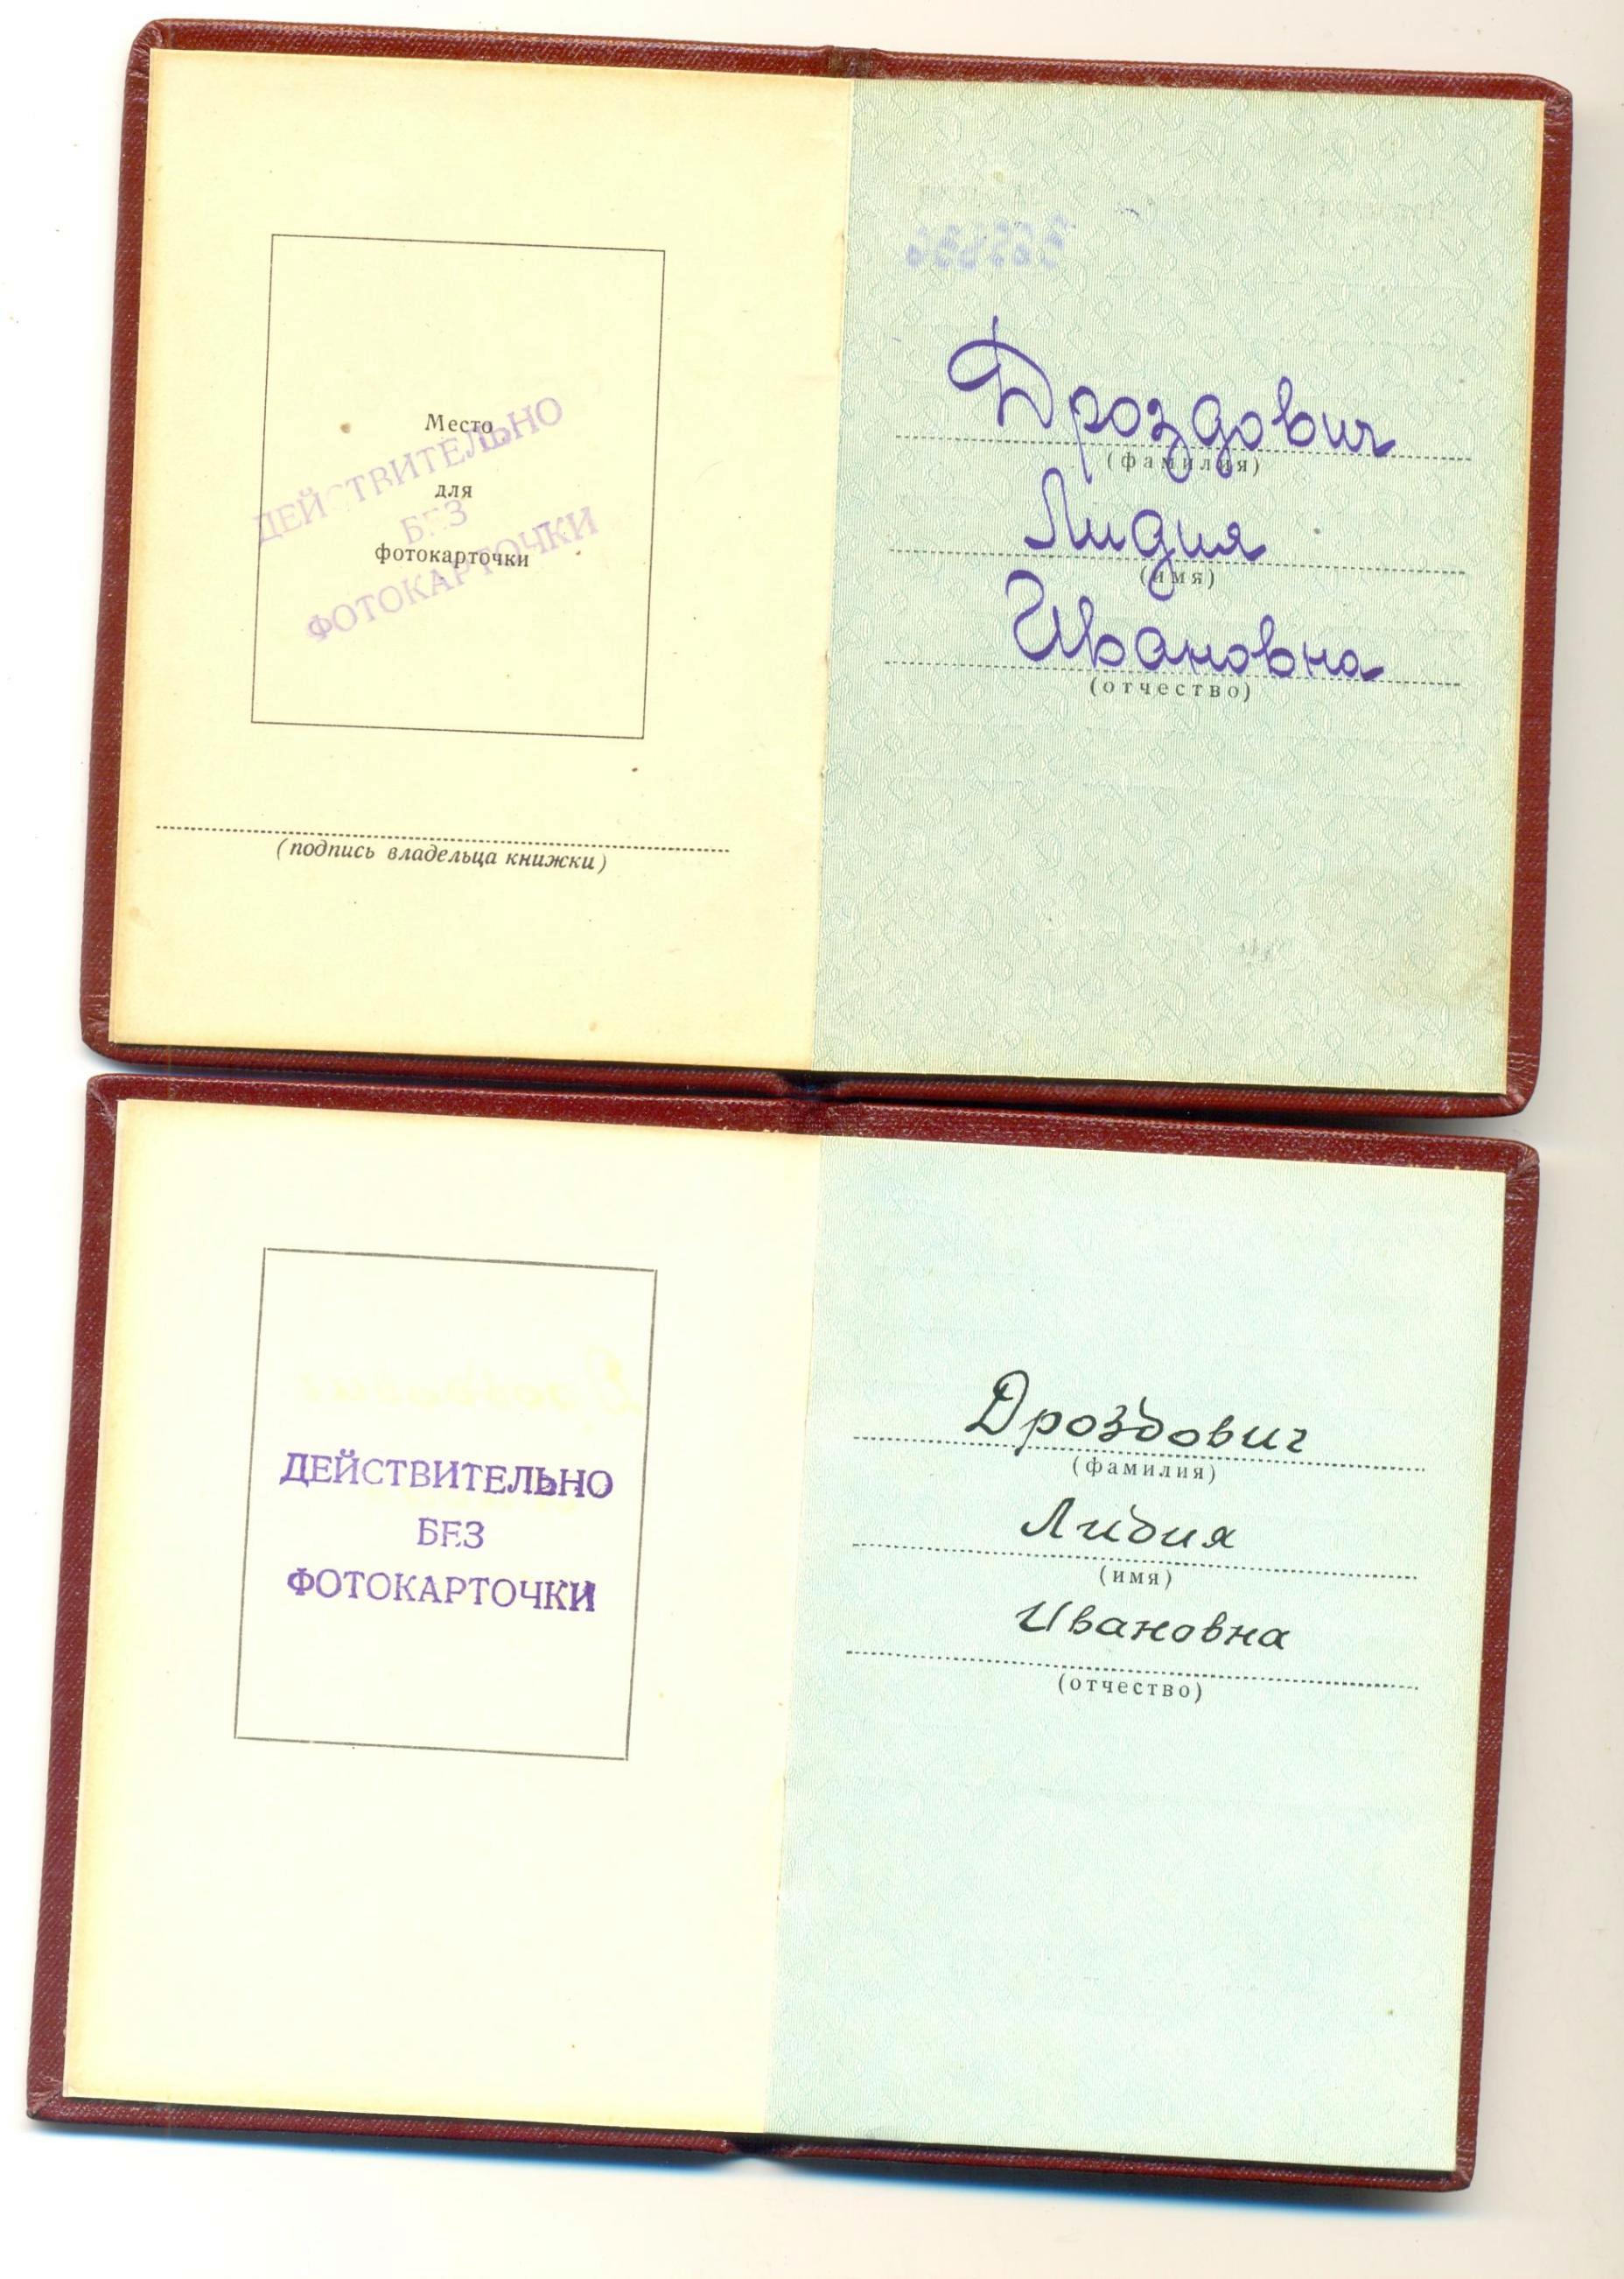 Место
для
фотокарточки
ДЕЙСТВИТЕЛЬНО
БЕЗ
ФОТОКАРТОЧКИ
(подпись владельца книжки)
Дроздович
(фамилия)
Лидия
(имя)
Ивановна
(отчество)
ДЕЙСТВИТЕЛЬНО
БЕЗ
ФОТОКАРТОЧКИ
Дроздович
(фамилия)
Лидия
(имя)
Ивановна
(отчество)